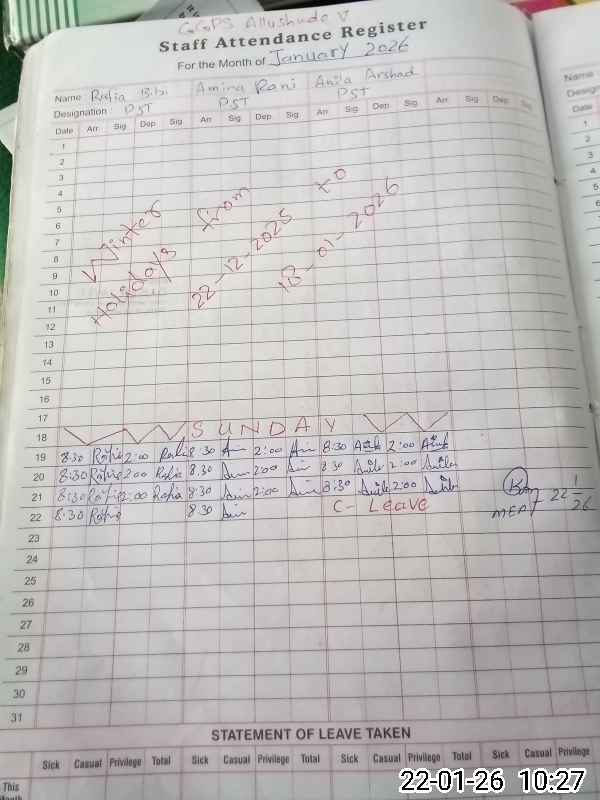 GGPS Allushude V
Staff Attendance Register
For the Month of January 2026
Name Rafia Bibi Amina Rani Anila Arshad
Designation PST PST PST
Date Arr. Sig. Dep. Sig. Arr. Sig. Dep. Sig. Arr. Sig. Dep. Sig. Arr. Sig. Dep. Sig.
1
2
3
4
5
6
7
8
9
10
11
12
13
14
15
16
Winter Holidays from 22-12-2025 to 18-01-2026
17
18 SUNDAY
19 8:30 Rafia 2:00 Rafia 8:30 2:00 8:30 2:00
20 8:30 Rafia 2:00 Rafia 8:30 2:00 8:30 Anila 2:00 Anila
21 8:30 Rafia 2:00 Rafia 8:30 2:00 8:30 Anila 2:00 Anila
22 8:30 Rafia 8:30 C- Leave
MEA 22 1/26
23
24
25
26
27
28
29
30
31
STATEMENT OF LEAVE TAKEN
Sick Casual Privilege Total Sick Casual Privilege Total Sick Casual Privilege Total Sick Casual Privilege
This
Month
Name
Date
1
2
3
4
5
6
22-01-26 10:27